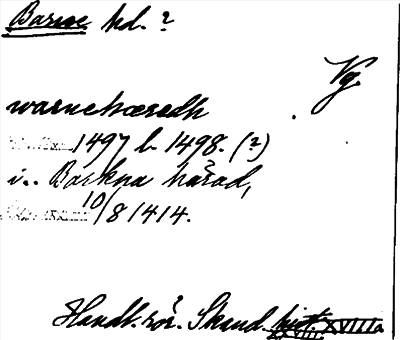 Barne hd. ?
Vg.
warnehæredh
1497 l. 1498. (?)
i.. Barkna härad,
10/8 1414.
Handl. rör. Skand. hist. XVIII a